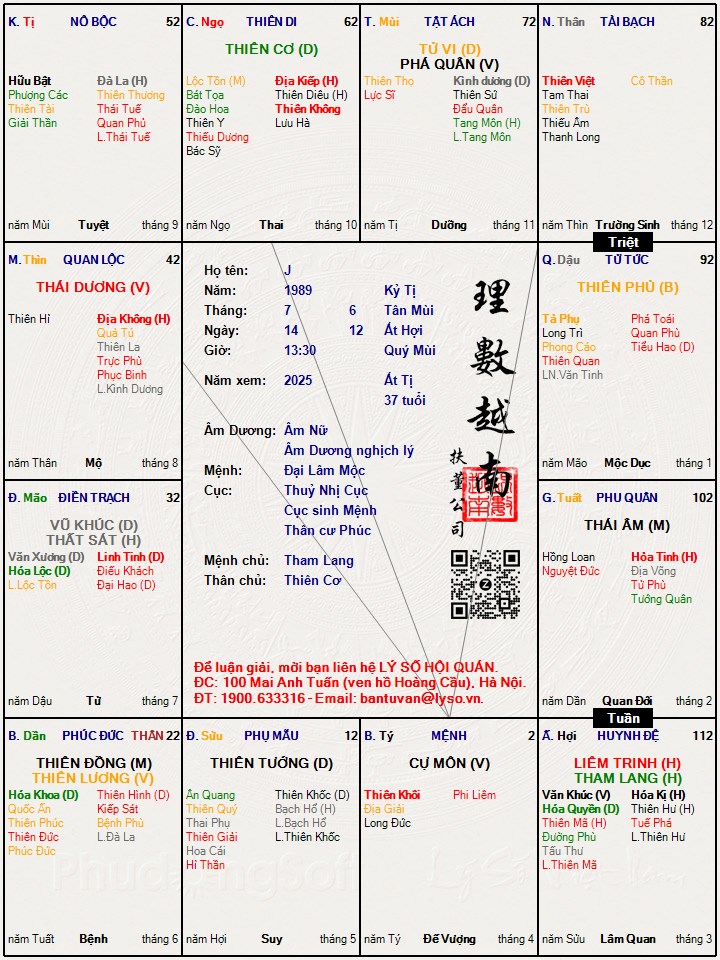 K. Tị NÔ BỘC 52
Hữu Bật
Phượng Các
Thiên Tài
Giải Thần
Đà La (H)
Thiên Thương
Thái Tuế
Quan Phủ
L.Thái Tuế
năm Mùi Tuyệt tháng 9
C. Ngọ THIÊN DI 62
THIÊN CƠ (D)
Lộc Tồn (M)
Bát Tọa
Đào Hoa
Thiên Y
Thiếu Dương
Bác Sỹ
Địa Kiếp (H)
Thiên Diêu (H)
Thiên Không
Lưu Hà
năm Ngọ Thai tháng 10
T. Mùi TẬT ÁCH 72
TỬ VI (D)
PHÁ QUÂN (V)
Thiên Thọ
Lực Sĩ
Kình dương (D)
Thiên Sứ
Đẩu Quân
Tang Môn (H)
L.Tang Môn
năm Tị Dưỡng tháng 11
N. Thân TÀI BẠCH 82
Thiên Việt
Tam Thai
Thiên Trù
Thiếu Âm
Thanh Long
Cô Thần
năm Thìn Trường Sinh tháng 12
Triệt
M. Thìn QUAN LỘC 42
THÁI DƯƠNG (V)
Thiên Hỉ
Địa Không (H)
Quả Tú
Thiên La
Trực Phù
Phục Binh
L.Kình Dương
năm Thân Mộ tháng 8
Họ tên: J
Năm: 1989 Kỷ Tị
Tháng: 7 6 Tân Mùi
Ngày: 14 12 Ất Hợi
Giờ: 13:30 Quý Mùi
Năm xem: 2025 Ất Tị
37 tuổi
Âm Dương: Âm Nữ
Âm Dương nghịch lý
Mệnh: Đại Lâm Mộc
Cục: Thuỷ Nhị Cục
Cục sinh Mệnh
Thân cư Phúc
Mệnh chủ: Tham Lang
Thân chủ: Thiên Cơ
理數越南
扶董公司
Để luận giải, mời bạn liên hệ LÝ SỐ HỘI QUÁN.
ĐC: 100 Mai Anh Tuấn (ven hồ Hoàng Cầu), Hà Nội.
ĐT: 1900.633316 - Email: bantuvan@lyso.vn.
Q. Dậu TỬ TỨC 92
THIÊN PHỦ (B)
Tả Phụ
Long Trì
Phong Cáo
Thiên Quan
LN.Văn Tinh
Phá Toái
Quan Phù
Tiểu Hao (D)
năm Mão Mộc Dục tháng 1
Đ. Mão ĐIỀN TRẠCH 32
VŨ KHÚC (D)
THẤT SÁT (H)
Văn Xương (D)
Hóa Lộc (D)
L.Lộc Tồn
Linh Tinh (D)
Điếu Khách
Đại Hao (D)
năm Dậu Tử tháng 7
G. Tuất PHU QUÂN 102
THÁI ÂM (M)
Hồng Loan
Nguyệt Đức
Hỏa Tinh (H)
Địa Võng
Tử Phù
Tướng Quân
năm Dần Quan Đới tháng 2
Tuần
B. Dần PHÚC ĐỨC THÂN 22
THIÊN ĐỒNG (M)
THIÊN LƯƠNG (V)
Hóa Khoa (D)
Quốc Ấn
Thiên Phúc
Thiên Đức
Phúc Đức
Thiên Hình (D)
Kiếp Sát
Bệnh Phù
L.Đà La
năm Tuất Bệnh tháng 6
Đ. Sửu PHỤ MẪU 12
THIÊN TƯỚNG (D)
Ân Quang
Thiên Quý
Thai Phụ
Thiên Giải
Hoa Cái
Hỉ Thần
Thiên Khốc (D)
Bạch Hổ (H)
L.Bạch Hổ
L.Thiên Khốc
năm Hợi Suy tháng 5
B. Tý MỆNH 2
CỰ MÔN (V)
Thiên Khôi
Địa Giải
Long Đức
Phi Liêm
năm Tý Đế Vượng tháng 4
Ấ. Hợi HUYNH ĐỆ 112
LIÊM TRINH (H)
THAM LANG (H)
Văn Khúc (V)
Hóa Quyền (D)
Thiên Mã (H)
Đường Phù
Tấu Thư
L.Thiên Mã
Hóa Kị (H)
Thiên Hư (H)
Tuế Phá
L.Thiên Hư
năm Sửu Lâm Quan tháng 3